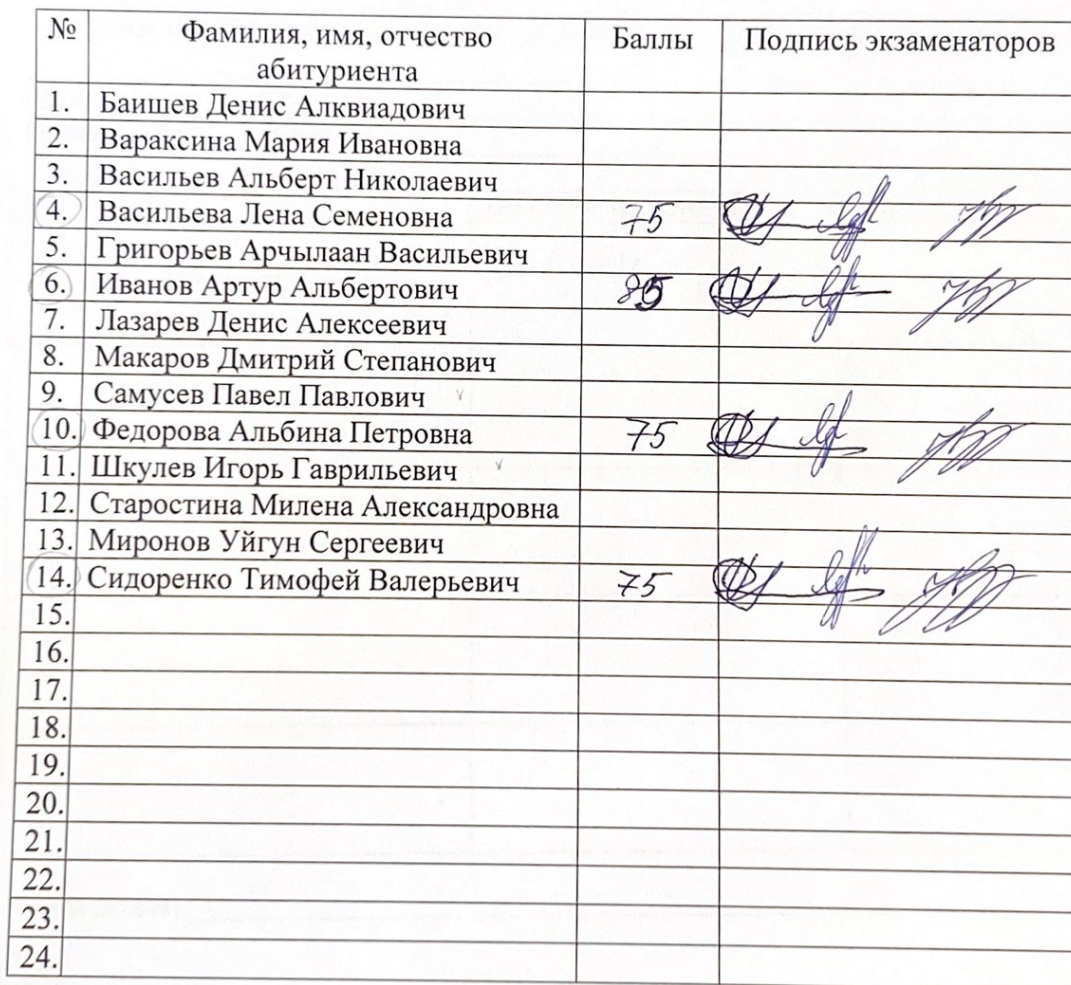 № Фамилия, имя, отчество Баллы Подпись экзаменаторов
абитуриента
1. Баишев Денис Алквиадович
2. Вараксина Мария Ивановна
3. Васильев Альберт Николаевич
4. Васильева Лена Семеновна 75
5. Григорьев Арчылаан Васильевич
6. Иванов Артур Альбертович 85
7. Лазарев Денис Алексеевич
8. Макаров Дмитрий Степанович
9. Самусев Павел Павлович
10. Федорова Альбина Петровна 75
11. Шкулев Игорь Гаврильевич
12. Старостина Милена Александровна
13. Миронов Уйгун Сергеевич
14. Сидоренко Тимофей Валерьевич 75
15.
16.
17.
18.
19.
20.
21.
22.
23.
24.